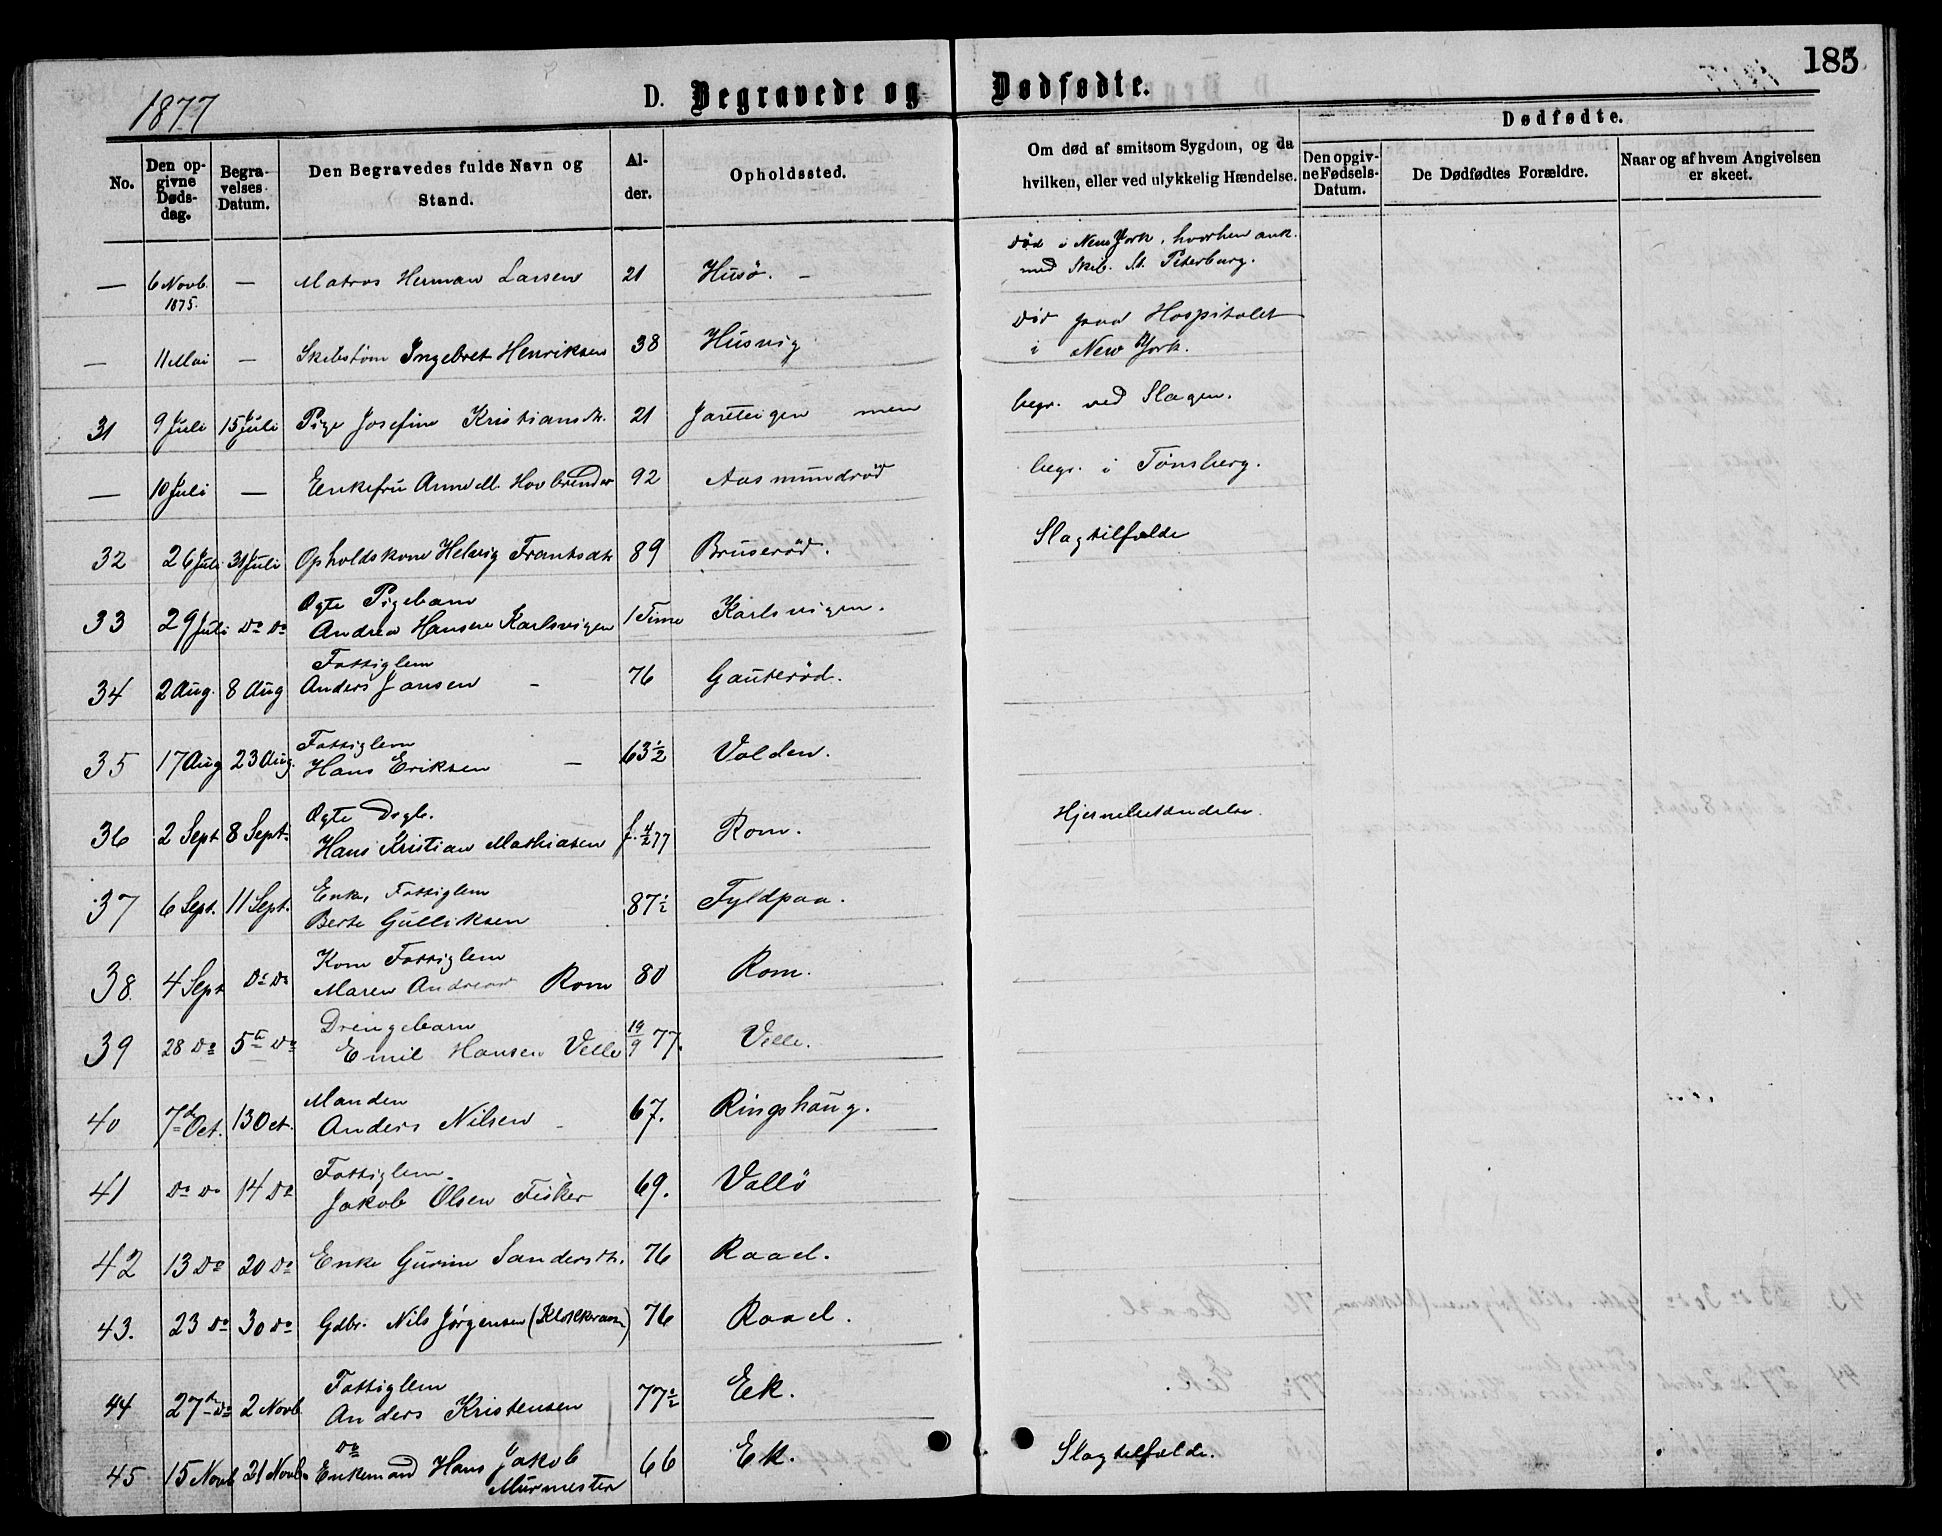 185
1877
D. Begravede og Dødfødte.
No.
Den opgivne Dødsdag.
Begravelses Datum.
Den Begravedes fulde Navn og Stand.
Alder.
Opholdssted.
Om død af smitsom Sygdom, og da hvilken, eller ved ulykkelig Hændelse.
Dødfødte.
Den opgivne Fødsels-Datum.
De Dødfødtes Forældre.
Naar og af hvem Angivelsen er skeet.
død i New York, hvorhen ank.
— 6 Novb. — Matros Herman Larsen 21 Husö. — med Skib. St. Petersburg.
1875.
død paa Hospitalet
— 11 Mai — Skibstøm Ingebret Henriksen 38 Husvig i New York.
31 9 Juli 15 Juli Pige Josefine Kristiansdtr. 21 Jarteigen men begr. ved Slagen.
— 10 Juli — Enkefru Anne M. Hovbrender 92 Aasmundrød begr. i Tønsberg.
32 26 Juli 31 Juli Opholdskone Helvig Frantsdtr 89 Bruserød. Slagtilfælde
Ægte Pigebarn
33 29 Juli Do Do Andrea Hansen Karlsvigen 1 Time Karlsvigen.
Fattiglem
34 2 Aug. 8 Aug Anders Jansen — 76 Gauterød.
Fattiglem
35 17 Aug 23 Aug. Hans Eriksen — 63½ Volden.
Ægte Drgb.
36 2 Sept 8 Sept. Hans Kristian Mathiasen f. 4/2 77 Rom. Hjernebetændelse.
Enke, Fattiglem
37 6 Sept. 11 Sept. Berte Gulliksen 87½ Fyldpaa.
Kone Fattiglem
38. 4 Sept Do Do Maren Andrea Rom 80 Rom.
Drengebarn
39 28 Do 5te Do Emil Hansen Velle 19/9 77. Velle.
Manden
40 7de Oct. 13 Oct. Anders Nilsen — 67. Ringshaug.
Fattiglem.
41 Do Do 14 Do Jakob Olsen Fisker 69. Vallö
42 13 Do 20 Do Enke Gurine Sandersdtr. 76 Raael.
43. 23 Do 30 Do Gdbr. Nils Jørgensen (Klokkeraasen) 76 Raael.
Fattiglem
44 27de Do 2 Novb Anders Kristensen 77½ Ek.
Do
45 15 Novb 21 Novb. Enkemand Hans Jakob 66 Ek. Slagtilfælde.
Murmester